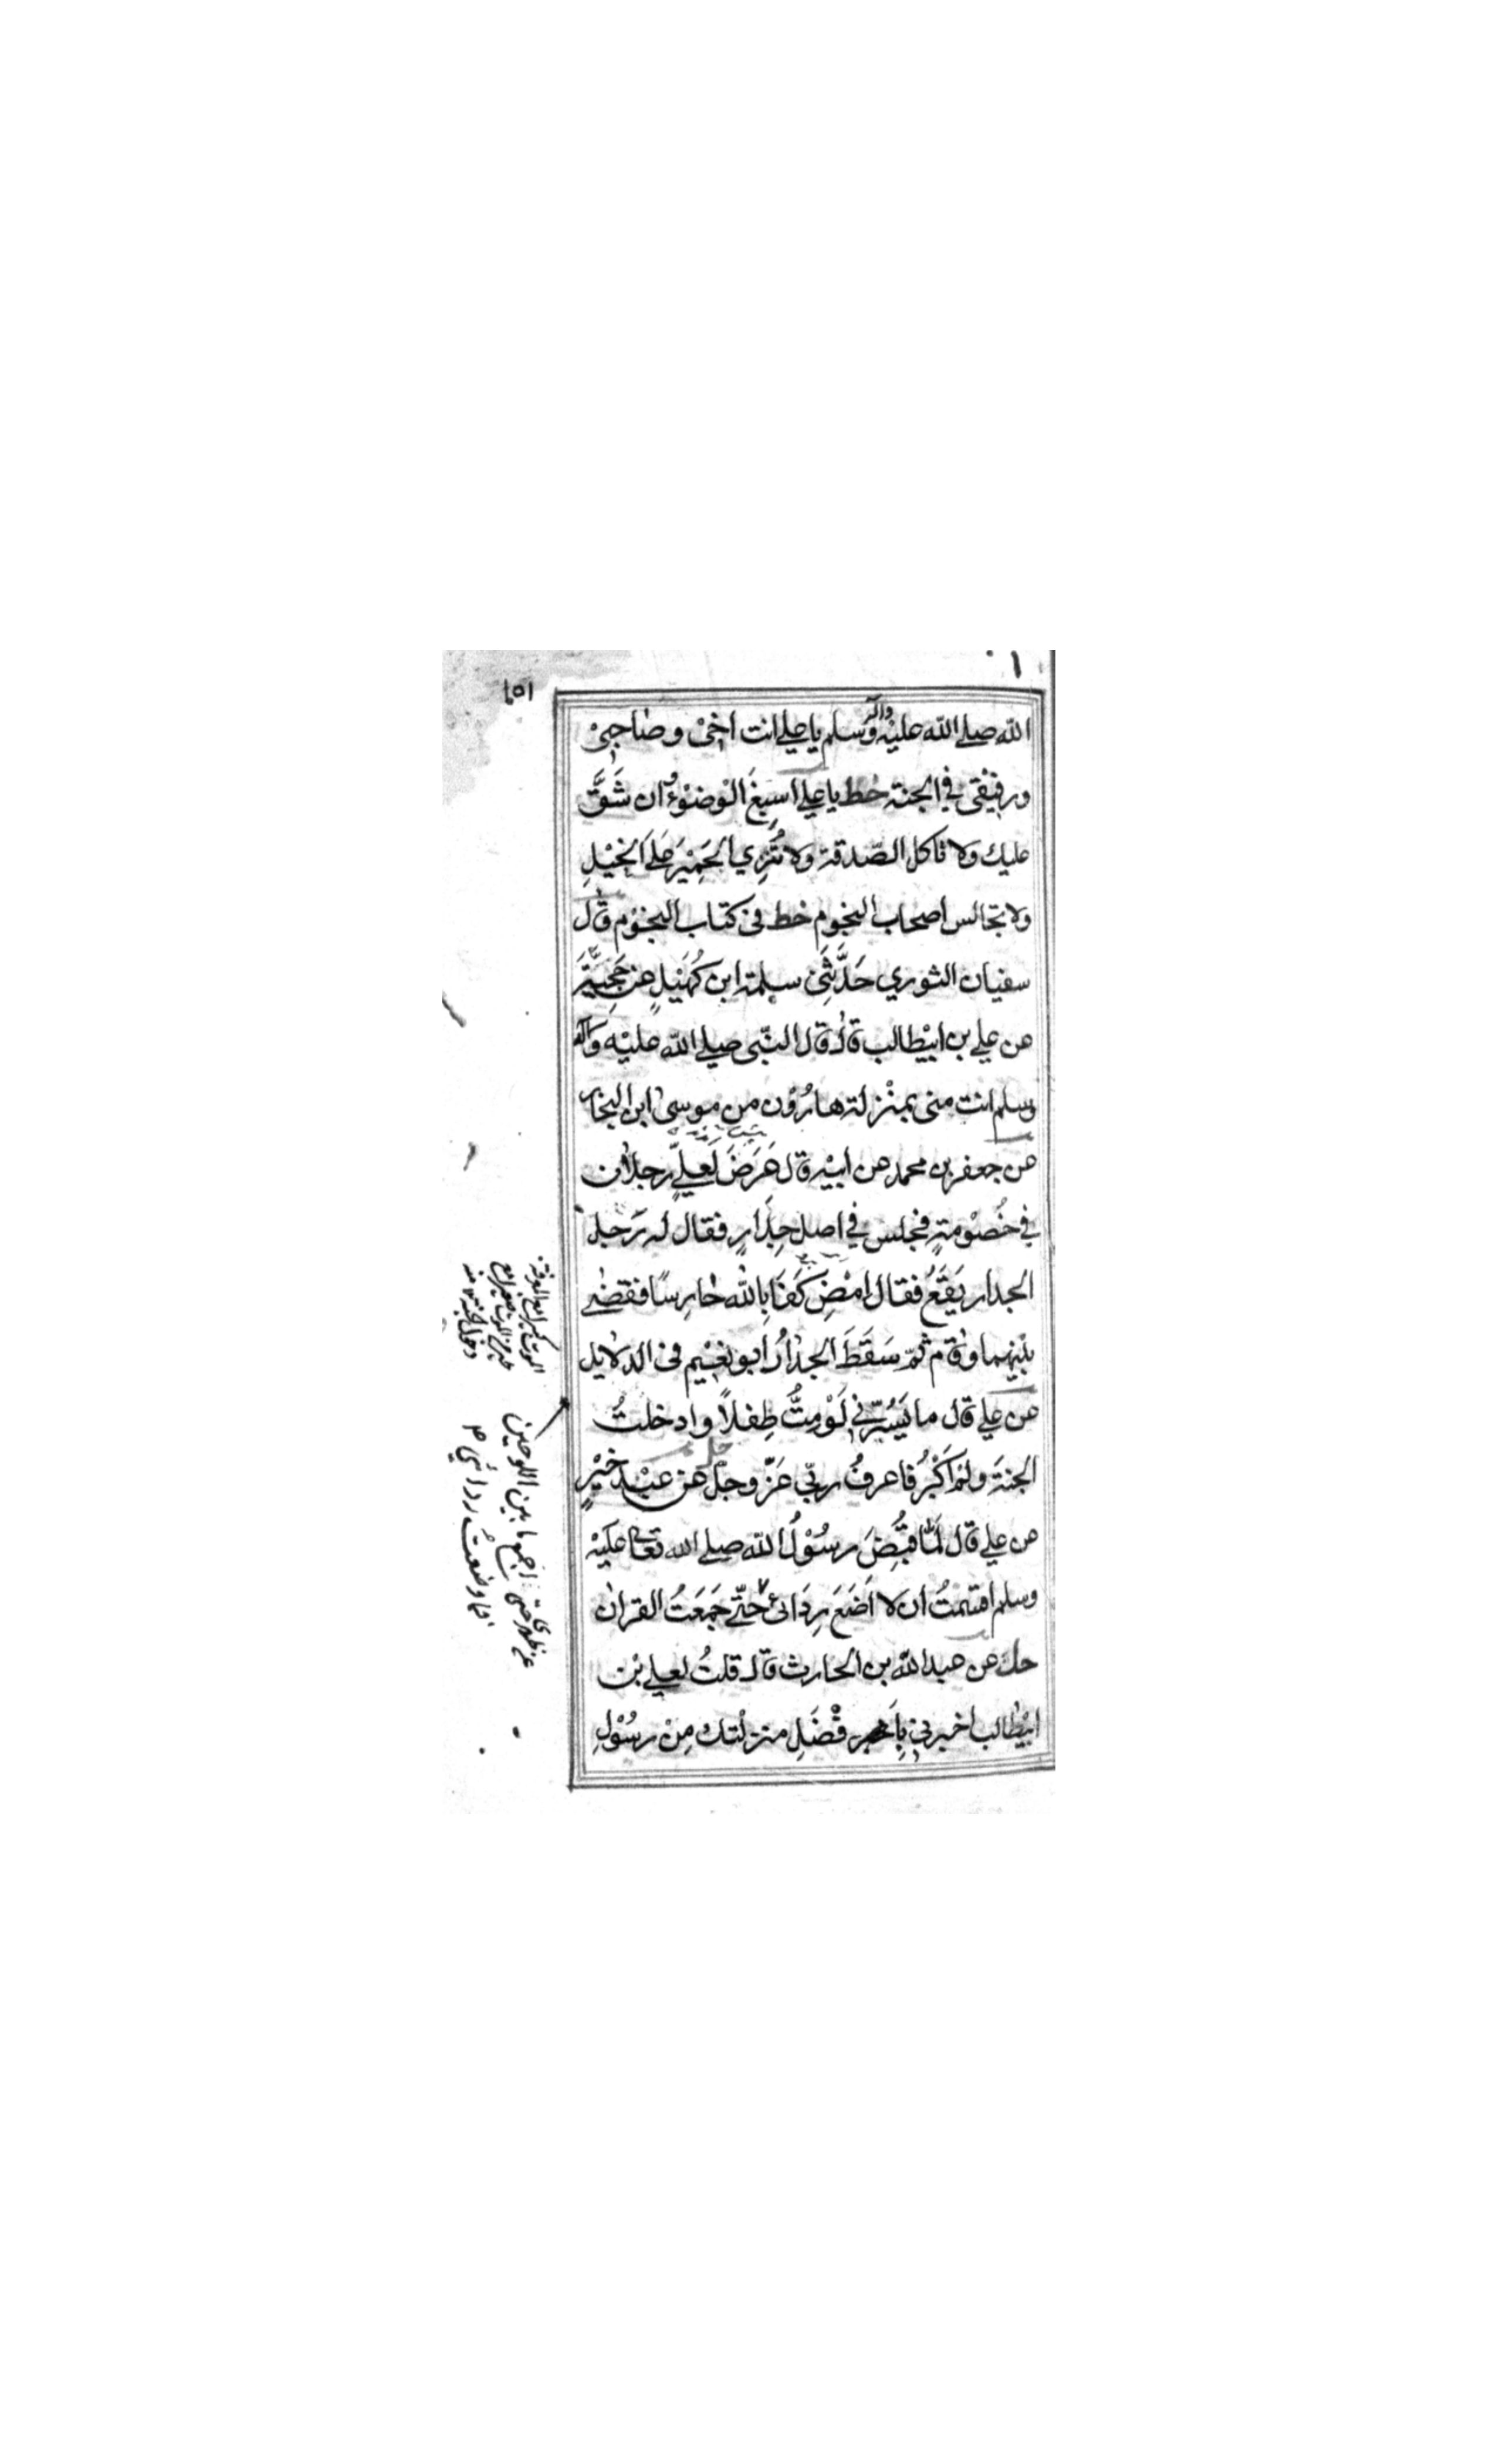 الله صلے الله عليه وآله وسلم يا علے انت اخي وصاحبي
ورفيقي في الجنة خط يا علے اسبغ الوضوء وان شقّ
عليك ولا تاكل الصّدقة ولا تُنزِي الحَمِيْرَ علَے الخَيْلِ
ولا تجالس اصحاب النجوم خط في كتاب النجوم قال
سفيان الثوري حَدَّثَنِي سلمة ابن كُهَيْلٍ عن حُجَيَّةَ
عن علے بن ابيطالب قال قال النبّي صلے الله عليه وآله
وسلم انت مني بمنْزلة هارُوْن من موسىٰ ابن النجار
عن جعفر بن محمد عن ابيه قال عَرَضَ لَعلےٍّ رجلان
في خُصُوْمةٍ فجلس في اصل جِدَارٍ فقال له رَجل
الجدار يَقَعُ فقال امْضِ كَفَا بِاللهِ حَارِسًا فقضےٰ
بَيْنهما وقام ثمّ سَقَطَ الجِدَارُ ابو نعَيْم في الدلايل
عن علے قال ما يَسُرّني لَوْ مِتُّ طِفلاً وادخلتُ
الجنةَ ولمْ اَكْبُر فاعرفُ ربّي عَزّ وجلّ عن عبْد خَيْرٍ
عن علے قال لَمَّا قُبِضَ رسُوْلُ الله صلے الله تعالى عليْه
وسلم اقسمتُ ان لا اَضَعَ رِدَائي حتّے جَمَعَتُ القران
حل عن عبد الله بن الحارث قال قلتُ لعلے بْن
ابيْطالب اخبرني بِاَفْضَلِ منزلتك مِنْ رسُوْلِ
الموت كبيرا مع المعرفة
خير من الموت صغيرا مع
دخول الجنة منه
عن ظهري حتى اجمع ما بين اللوحين
فما وضعتُ ردائي م